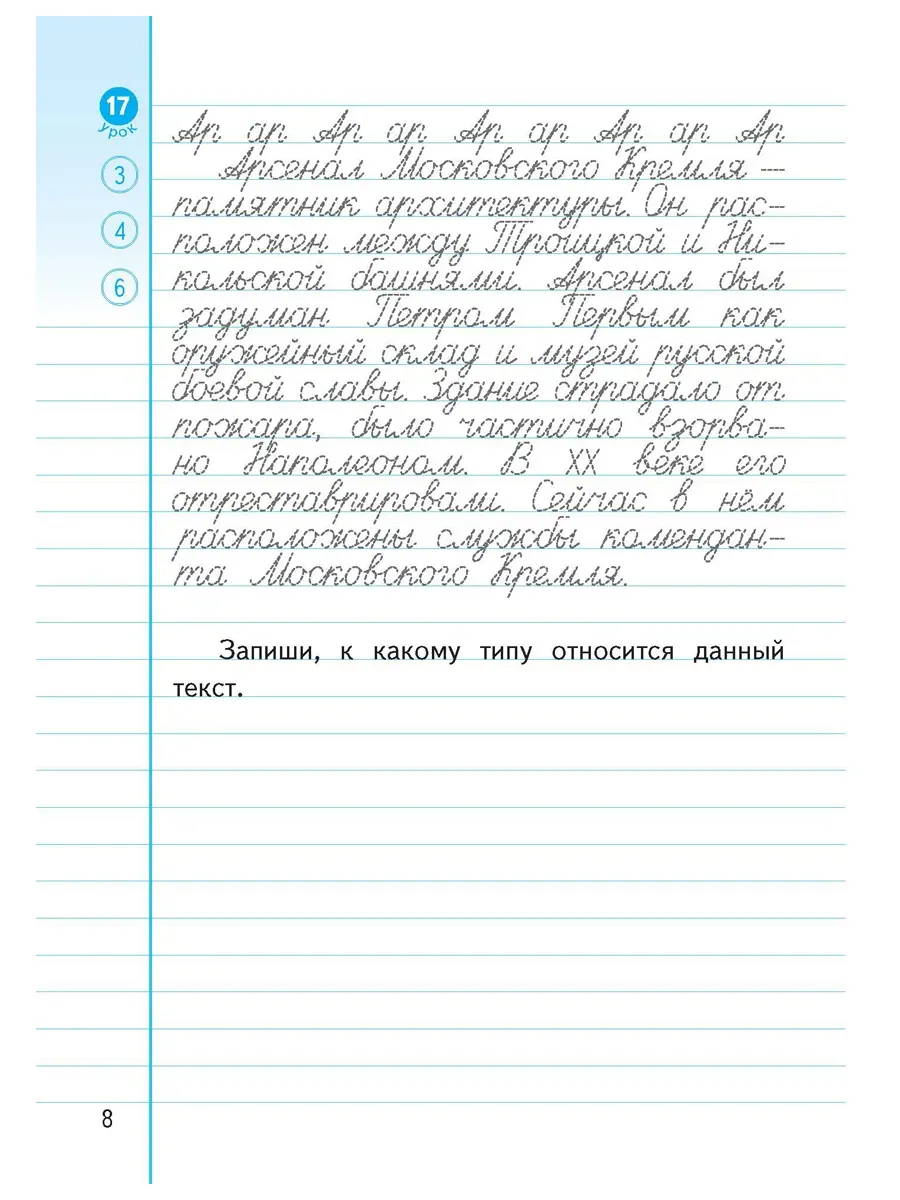 17
Урок
3
4
6
Ар ар Ар ар Ар ар Ар ар Ар
Арсенал Московского Кремля —
памятник архитектуры. Он рас-
положен между Троицкой и Ни-
кольской башнями. Арсенал был
задуман Петром Первым как
оружейный склад и музей русской
боевой славы. Здание страдало от
пожара, было частично взорва-
но Наполеоном. В XX веке его
отреставрировали. Сейчас в нём
расположены службы комендан-
та Московского Кремля.
Запиши, к какому типу относится данный
текст.
8